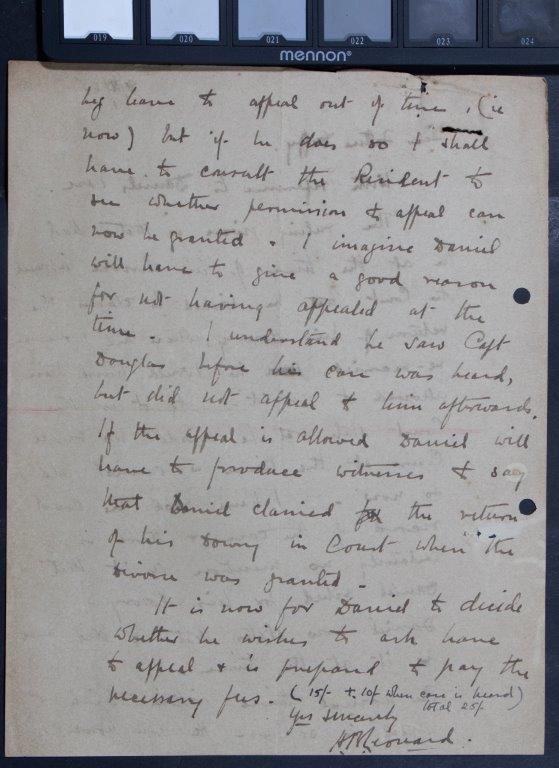 019 020 021 022 023 024
mennon®
beg leave to appeal out of time, (ie
now) but if he does so I shall
have to consult the Resident to
see whether permission to appeal can
now be granted. I imagine Daniel
will have to give a good reason
for not having appealed at the
time. I understand he saw Capt
Douglas before his case was heard,
but did not appeal to him afterwards.
If the appeal is allowed Daniel will
have to produce witnesses to say
that Daniel claimed the return
of his Dowry in Court when the
Divorce was granted.
It is now for Daniel to decide
whether he wishes to ask leave
to appeal & is prepared to pay the
necessary fees. (15/- + 10/- when case is heard)
total 25/-
Yrs sincerely